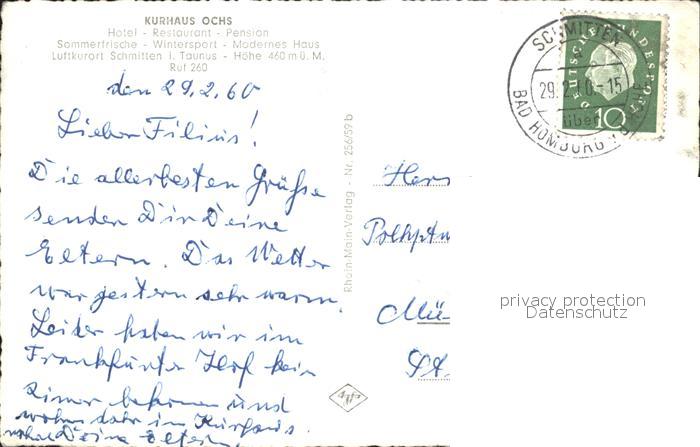 KURHAUS OCHS
Hotel - Restaurant - Pension
Sommerfrische - Wintersport - Modernes Haus
Luftkurort Schmitten i. Taunus - Höhe 460 m ü. M.
Ruf 260
den 29.2.60
Lieber Filius!
Die allerbesten Grüße
senden Dir Deine
Eltern. Das Wetter
war gestern sehr warm.
Leider haben wir im
Frankfurter Hof kein
Zimmer bekommen und
wohnen dafür im Kurhaus.
Deine Eltern.
Rhein-Main-Verlag - Nr. 256/59 b
Agfa
SCHMITTEN
29.2.60-15
über
BAD HOMBURG
DEUTSCHE BUNDESPOST
10
Herr
Mü
privacy protection
Datenschutz